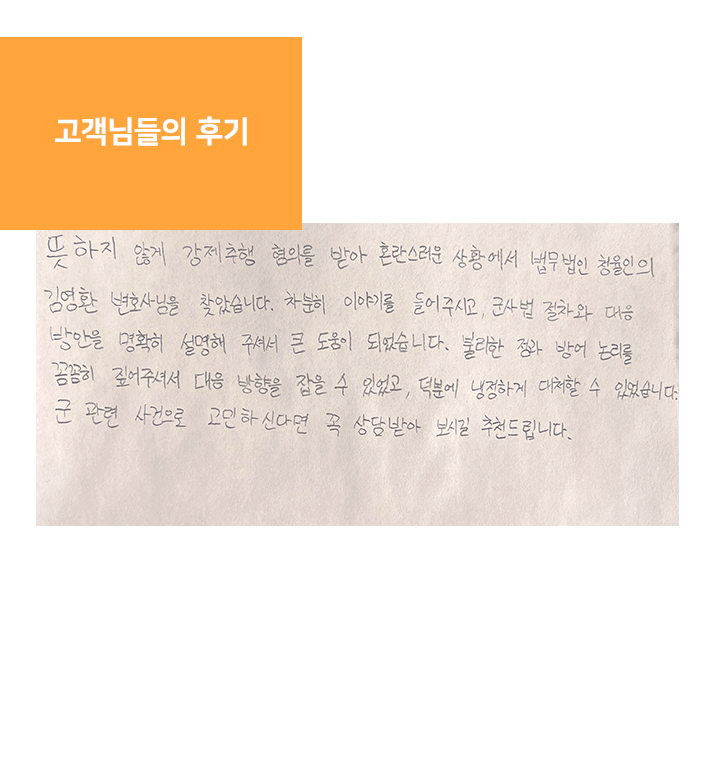 고객님들의 후기
뜻하지 않게 강제추행 혐의를 받아 혼란스러운 상황에서 법무법인 청율인의
김영환 변호사님을 찾았습니다. 차분히 이야기를 들어주시고, 군사법 절차와 대응
방안을 명확히 설명해 주셔서 큰 도움이 되었습니다. 불리한 점과 방어 논리를
꼼꼼히 짚어주셔서 대응 방향을 잡을 수 있었고, 덕분에 냉정하게 대처할 수 있었습니다.
군 관련 사건으로 고민하신다면 꼭 상담받아 보시길 추천드립니다.